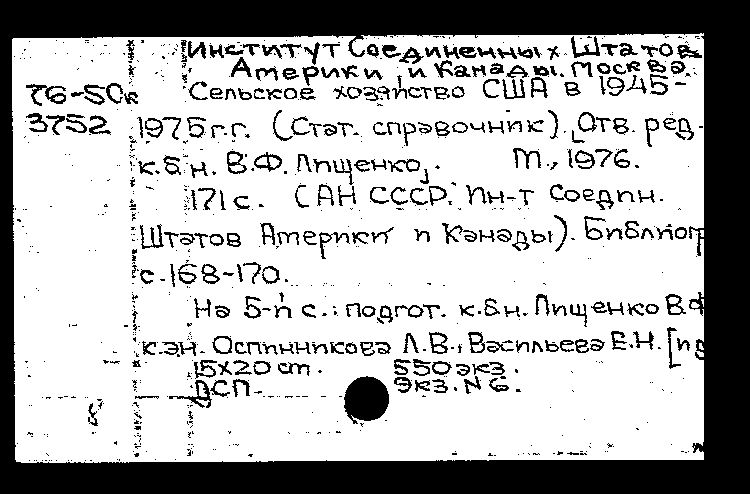 Институт Соединенных Штатов
Америки и Канады. Москва.
76-50к
Сельское хозяйство США в 1945-
3752
1975гг. (Стат. справочник). [Отв. ред.
к.б.н. В.Ф. Лищенко]. М., 1976.
171с. (АН СССР. Ин-т Соедин.
Штатов Америки и Канады). Библиогр
с.168-170.
На 5-й с.: подгот. к.б.н. Лищенко В.Ф
к.эн. Оспинникова Л.В., Васильева Е.Н. [и др
15х20 cm. 550экз.
ДСП Экз. N 6.
8